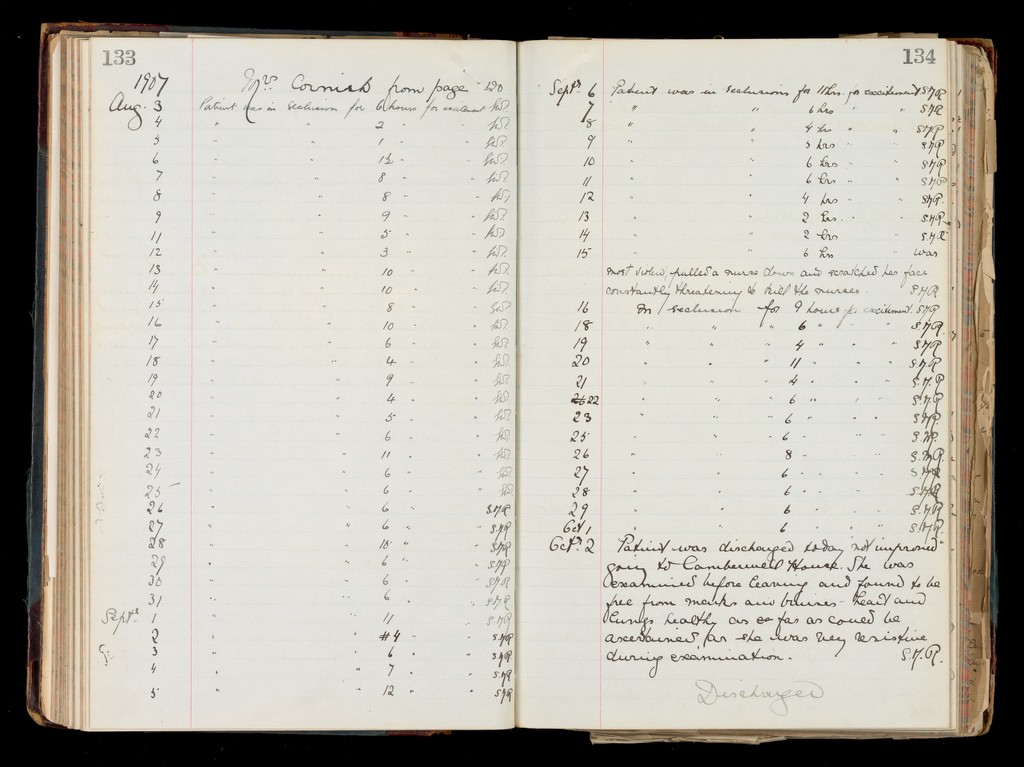 133
1907 Mrs Cornish from page 120
Aug. 3 Patient was in seclusion for 6 hours for excitement
4 " " 2 " "
5 " " 1 " "
6 " " 1½ " "
7 " " 8 " "
8 " " 8 " "
9 " " 9 " "
11 " " 5 " "
12 " " 3 " "
13 " " 10 " "
14 " " 10 " "
15 " " 8 " "
16 " " 10 " "
17 " " 6 " "
18 " " 4 " "
19 " " 9 " "
20 " " 4 " "
21 " " 5 " "
22 " " 6 " "
23 " " 11 " "
24 " " 6 " "
25 " " 6 " "
26 " " 6 " " S.M.R
27 " " 6 " " S.M.R
28 " " 10 " " S.M.R
29 " " 6 " " S.M.R
30 " " 6 " " S.M.R
31 " " 6 " " S.M.R
Septr. 1 " " 11 " " S.M.R
2 " " 4 " " S.M.R
3 " " 6 " " S.M.R
4 " " 7 " " S.M.R
5 " " 12 " " S.M.R
134
Septr 6 Patient was in seclusion for 11 hrs. for excitement S.M.R
7 " " 6 hrs " S.M.R
8 " " 4 hrs " " S.M.R
9 " " 5 hrs " " S.M.R
10 " " 6 hrs " " S.M.R
11 " " 6 hrs " " S.M.R
12 " " 4 hrs " " S.M.R
13 " " 2 hrs " " S.M.R
14 " " 2 hrs " " S.M.R
15 " " 6 hrs " " was
most violent, pulled a nurse down and scratched her face
constantly threatening to kill the nurses. S.M.R
16 In seclusion for 9 hours for excitement. S.M.R
18 " " " 6 " " " S.M.R.
19 " " " 4 " " " S.M.R
20 " " 11 " " " S.M.R
21 " " 4 " " " S.M.R.
22 " " 6 " " " S.M.R
23 " " 6 " " " S.M.R
25 " " 6 " " " S.M.R.
26 " " 8 " " " S.M.R.
27 " " 6 " " " S.M.R
28 " " 6 " " " S.M.R
29 " " 6 " " " S.M.R
Oct 1 " " 6 " " " S.M.R.
Octr. 2 Patient was discharged today "not improved"
going to Camberwell House. She was
examined before leaving and found to be
free from marks and bruises - heart and
lungs healthy as far as could be
ascertained as she was very resistive
during examination. S.M.R.
Discharged